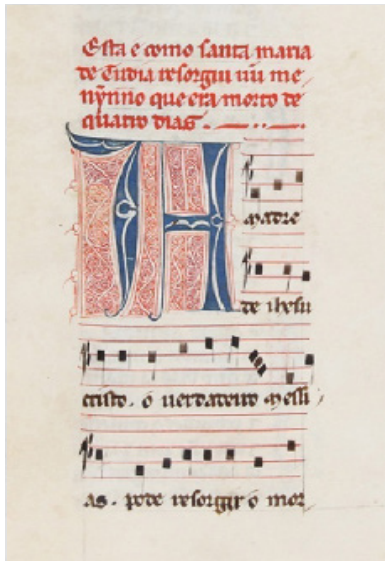 Esta e como santa maria
de Tudia resorgiu uu me
nỹnno que era morto de
quatro dias.
A
Madre
de ihesu
cristo. o uerdadeiro Messi
as. pode resorgir o mor